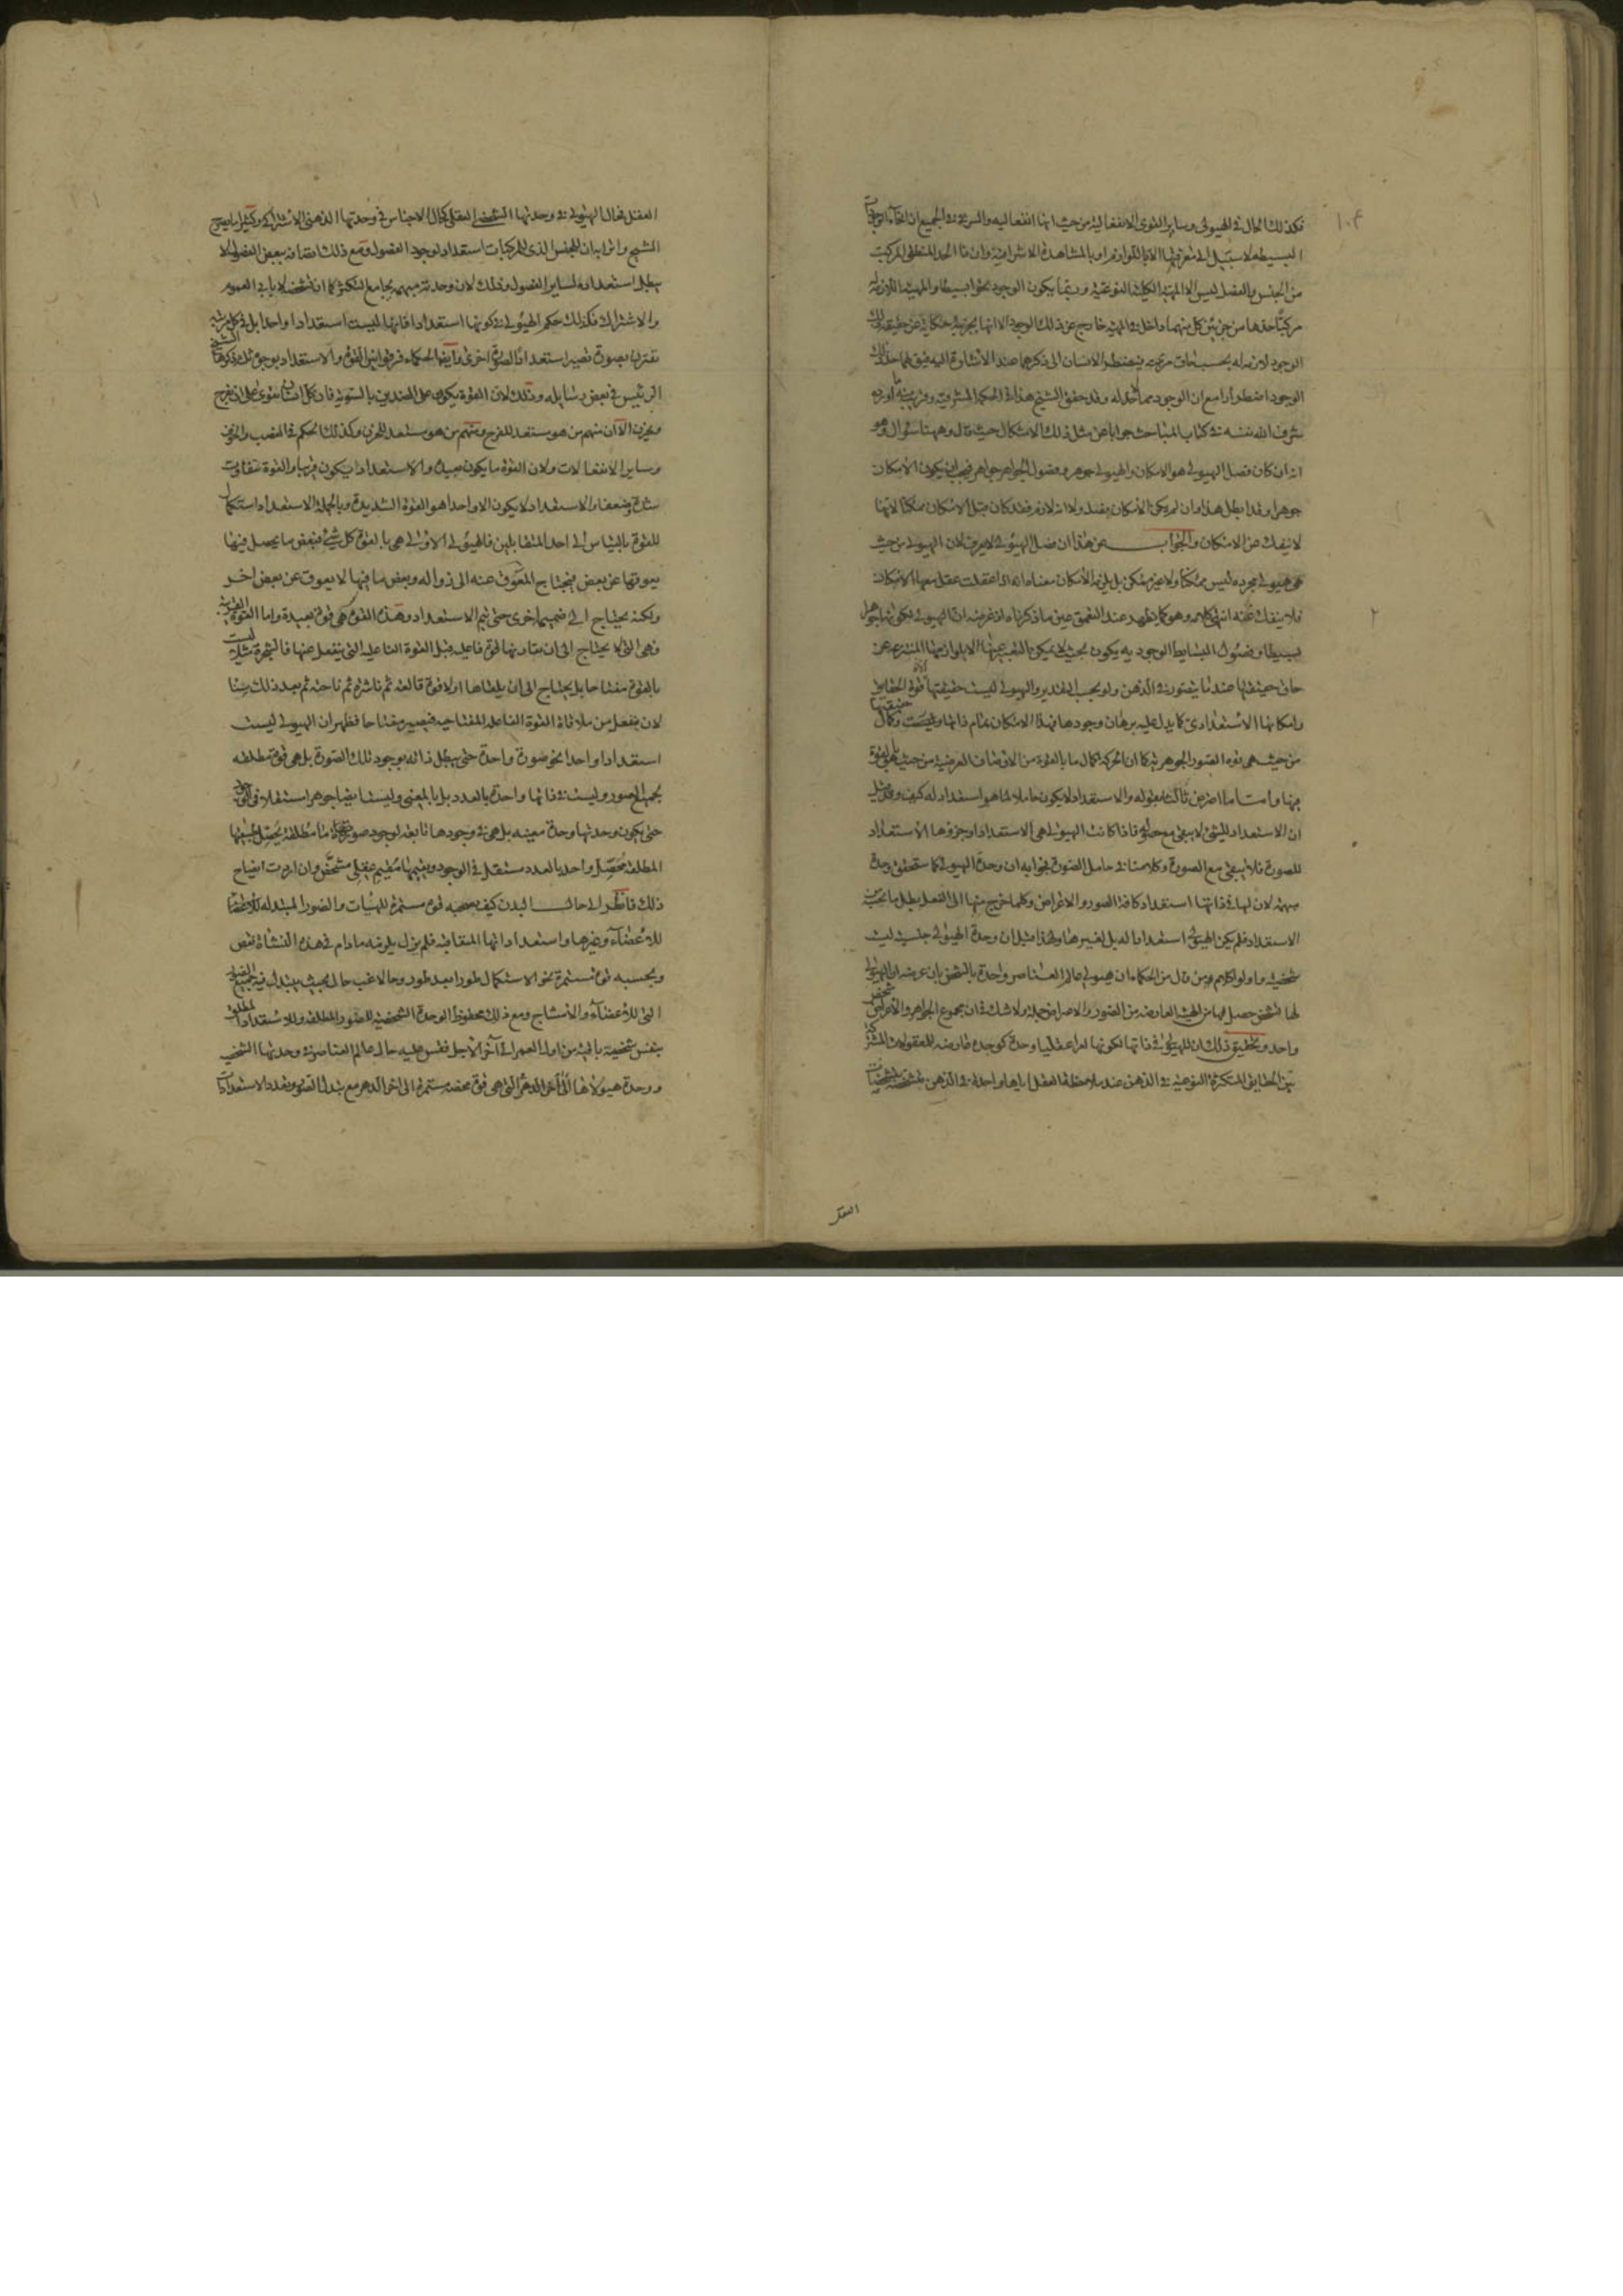 فكذلك الحال في الهيولى وساير القوى الانفعالية من حيث انها انفعاليه والسر في الجميع ان انحاء الوجودات
البسيطه لا سبيل الى معرفتها الا باللوازم او بالمشاهدة الاشراقية وان ما الحد المنطقي المركب
من الجنس والفصل ليس الا المهية الكلية النوعية وربما يكون الوجود نحوا بسيطا والمهية اللازمة له
مركبا حدها من جزئين كل منهما داخل في المهية خارج عن ذلك الوجود الا انها بجزئيه حكاية عن حقيقة ذلك
الوجود لازمة له بحسب حاق مرتبته فيضطر الانسان الى ذكرهما عند الاشارة اليه
الوجود اضطرارا مع ان الوجود مما لا حد له وقد حقق الشيخ هذا في الحكمة المشرقية وقريب منه ما اورده
شرف الله نفسه في كتاب المباحث جوابا عن مثل ذلك الاشكال حيث قال وههنا سؤال وهو
انه ان كان فصل الهيولى هو الامكان والهيولى جوهر وفصول الجواهر جواهر فيجب ان يكون الامكان
جوهرا وقد ابطل هذا وان لم يكن الامكان فصلا ولا انه لازم فقد كان قبل الامكان ممكنا لانها
لا ينفك عن الامكان والجواب عن هذا ان فصل الهيولى لا يعرف لان الهيولى من حيث
هي هيولى مجرده ليس ممكنا ولا غير ممكن بل يلزمه الامكان معناه انه اذا عقلت عقل معها الامكان
فلا ينفك عنه انتهى كلامه وهو كما يظهر عند التعمق عين ما ذكرناه اذ غرضه ان الهيولى لكونها جوهرا
بسيطا وفصول البسايط الوجودية يكون بحيث لا يمكن التعبير عنها الا بلوازمها المنتزعة عن
حاق حقيقتها عند ما يتصور في الذهن ولو بحسب التقدير والهيولى ليست حقيقتها الا قوة الحقايق
وامكانها الاستعدادي كما يدل عليه برهان وجودها فهذا الامكان تمام ذاتها وحقيقتها وليست وكمال
من حيث هي قوة الصور الجوهرية كما ان الحركة كمال ما بالقوة من الاوصاف العرضية من حيث هو بالقوة
فيها واما ما اعترض ثالثا بقوله والاستعداد لا يكون حاملا لما هو استعداد له كيف وقد قيل
ان الاستعداد للشئ لا يبقى مع حصوله فاذا كانت الهيولى هي الاستعداد او جزؤها الاستعداد
للصورة فلا يبقى مع الصورة وكلامنا في حامل الصورة فجوابه ان وحدة الهيولى كما ستحقق وحدة
مبهمة لان لها في ذاتها استعداد كافة الصور والاعراض وكلما خرج منها الى الفعل بطل ما بحسبه من
الاستعداد فلم يكن الهيولى استعدادا له بل لغيرها ولهذا قيل ان وحدة الهيولى جنسية ليست
شخصية واولوا كلام من قال من الحكماء ان هيولى عالم العناصر واحدة بالشخص بان غرضه ان الهيولى
لها تشخص حصل لها من الهيئة العارضة من الصور والاعراض جملة ولا شك في ان مجموع الجواهر والاعراض شخص
واحد وتحقيق ذلك ان للهيولى في ذاتها لكونها امرا عقليا وحدة كوحدة عارضه للمعقولات المشتركة
بين الحقايق المتكثرة النوعية في الذهن عند ملاحظة العقل اياها واحدة في الذهن متشخصة بتشخصات
العقل
العقل فحال الهيولى في وحدتها الشخصي العقلي كحال الاجناس في وحدتها الذهني الاشتراكي وكثيرا ما يصرح
الشيخ واترابه ان للجنس الذي للمركبات استعداد لوجود الفصول ومع ذلك اتصافه ببعض الفصول لا
يبطل استعداده لساير الفصول وذلك لان وحدته مبهمه يجامع التكثر كما ان تشخصه لا يابى العموم
والاشتراك فكذلك حكم الهيولى في كونها استعدادا فانها ليست استعدادا واحدا بل في كل مرتبة
تقترن بصورة تصير استعدادا لصورة اخرى وايضا الحكماء فرقوا بين القوة والاستعداد بوجوه ثلاثة ذكرها الشيخ
الرئيس في بعض رسايله وذلك لان القوة يكون على الضدين بالسوية فان كل انسان يقوى على ان يفرح
ويحزن الا ان منهم من هو مستعد للفرح ومنهم من هو مستعد للحزن وكذلك الحكم في الغضب والخوف
وساير الانفعالات ولان القوة ما يكون بعيدة والاستعداد يكون قريبا والقوة متفاوت
شدة وضعفا والاستعداد لا يكون الا واحدا هو القوة الشديدة وبالجملة الاستعداد استكمال
للقوة بالقياس الى احد المتقابلين فالهيولى الاولى هي بالقوة كل شئ فبعض ما يحصل فيها
يعوقها عن بعض فيحتاج المعوق عنه الى زواله وبعض ما فيها لا يعوق عن بعض اخر
ولكنه يحتاج الى ضميمة اخرى حتى يتم الاستعداد وهذه القوة هي قوة بعيدة واما القوة القريبة
فهي التي لا يحتاج الى ان يتقدمها قوة فاعليه قبل القوة الفاعليه التي ينفعل عنها فالشجرة مثلا ليست
بالقوة مفتاحا بل يحتاج الى ان يلقاها اولا قوة قالعة ثم ناشرة ثم ناحتة ثم بعد ذلك يتهيا
لان ينفعل من ملاقاة القوة الفاعله المفتاحيه فيصير مفتاحا فظهر ان الهيولى ليست
استعدادا واحدا نحو صورة واحدة حتى يبطل ذاته بوجود تلك الصورة بل هي قوة مطلقه
بجميع الصور وليست في ذاتها واحدة بالعدد بل بالمعنى وليست ايضا جوهرا مستقلا في الوجود
حتى يكون وحدتها وحدة معينه بل هي في وجودها تابعة لوجود صورة ما مطلقة يحصل بتبعيتها
المطلقة محصل واحد بالعدد مستقل في الوجود ويقيمها مقيم عقلي مشخص وان اردت ايضاح
ذلك فانظر الى حال البدن كيف يصحبه قوة مستمرة للهيئات والصور المتبدلة للاعضاء
للاعضاء وغيرها واستعداداتها المتعاقبة فلم يزل يلزمه ما دام في هذه النشاة نقص
وبحسبه قوة مستمرة نحو الاستكمال طورا بعد طور وحالا غب حال بحيث يتبدل فيه جميع الصور
التي للاعضاء والامشاج ومع ذلك محفوظ الوحدة الشخصية للصور المطلقة وللاستعداد المطلق
بنفس شخصية باقية من اول العمر الى آخر الاجل فقس عليه حال عالم العناصر في وحدتها الشخصية
ووحدة هيولاها التي هي قوة محضة مستمرة الى اخر الدهر مع تبدل الصور وتعدد الاستعدادات